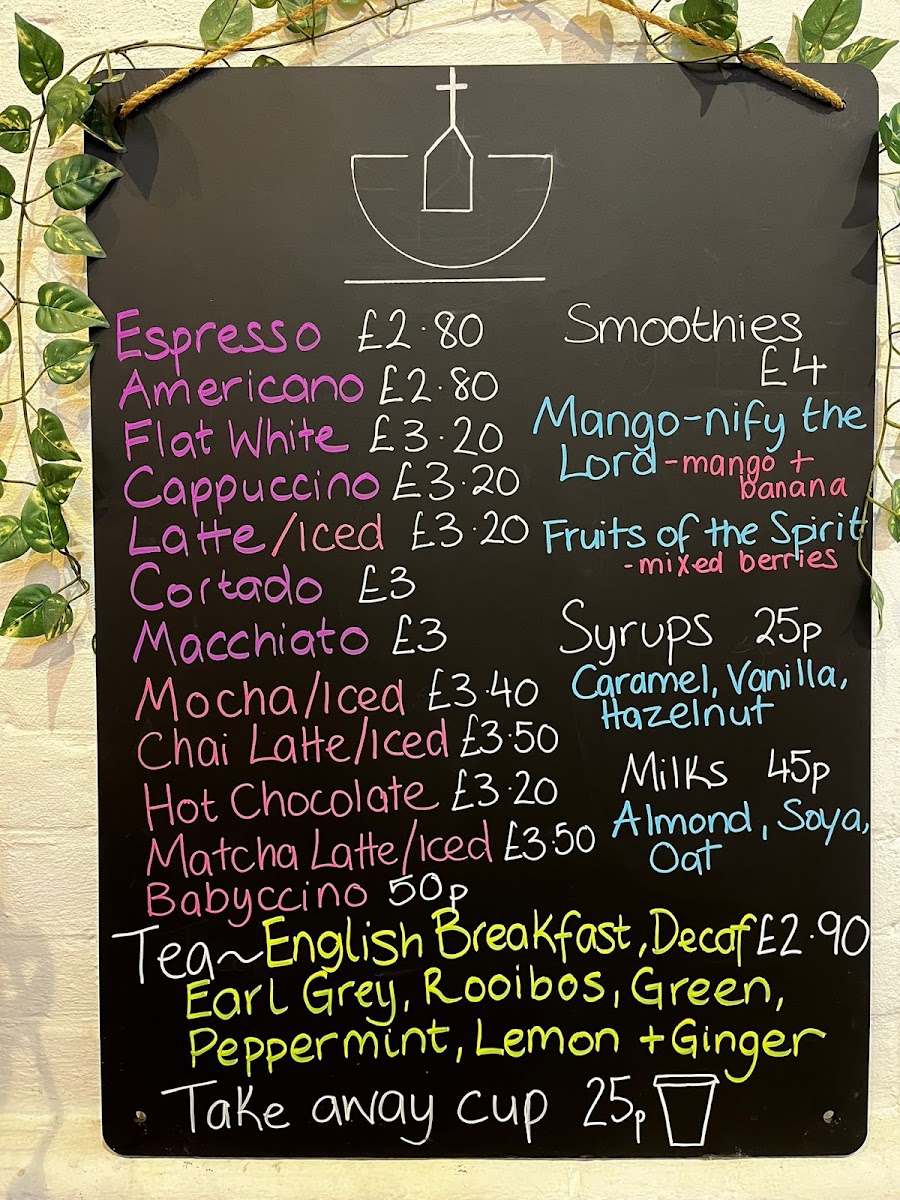 Espresso £2.80
Americano £2.80
Flat White £3.20
Cappuccino £3.20
Latte/Iced £3.20
Cortado £3
Macchiato £3
Mocha/Iced £3.40
Chai Latte/Iced £3.50
Hot Chocolate £3.20
Matcha Latte/Iced £3.50
Babyccino 50p
Smoothies
£4
Mango-nify the
Lord -mango +
banana
Fruits of the Spirit
-mixed berries
Syrups 25p
Caramel, Vanilla,
Hazelnut
Milks 45p
Almond, Soya,
Oat
Tea~English Breakfast, Decaf £2.90
Earl Grey, Rooibos, Green,
Peppermint, Lemon + Ginger
Take away cup 25p